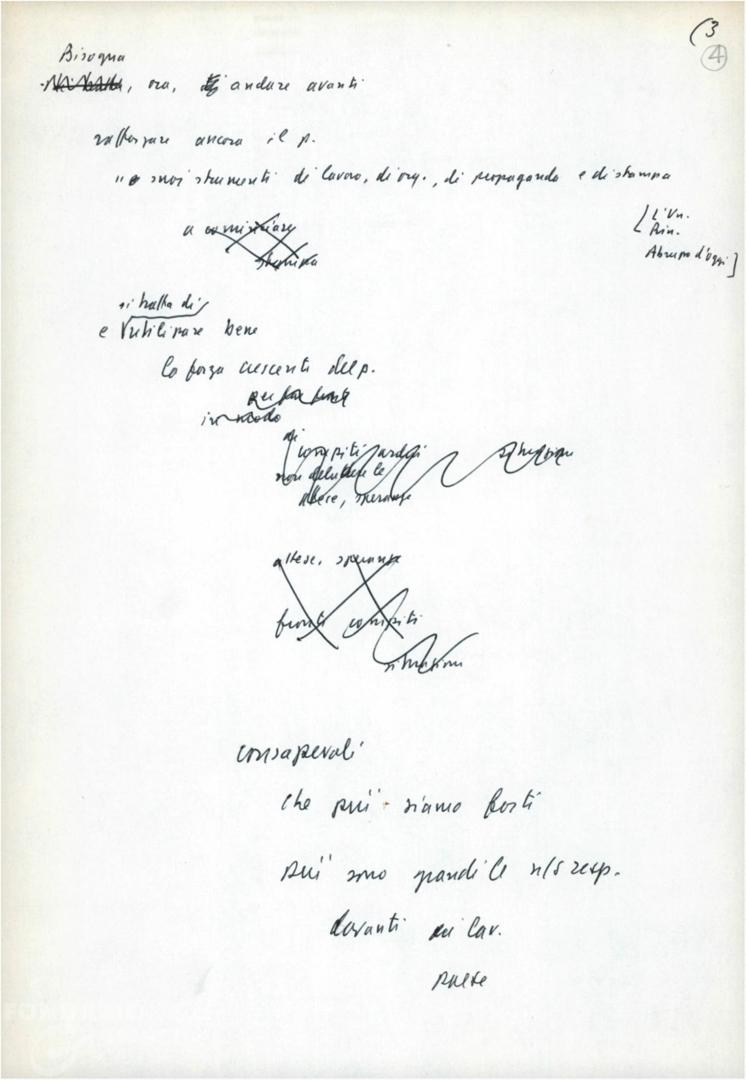 (3
4
Bisogna
Si tratta, ora, di andare avanti
rafforzare ancora il p.
" i suoi strumenti di lavoro, di org., di propaganda e di stampa
a cominciare
stampa
[L'Un.
Rin.
Abruzzo d'oggi]
si tratta di
e utilizzare bene
la forza crescente del p.
per far fronte
in modo
di
compiti ardui situazione
non deludere le
attese, speranze
attese, speranze
fronte compiti
situazione
consapevoli
che più siamo forti
più sono grandi le n/s resp.
davanti ai lav.
paese